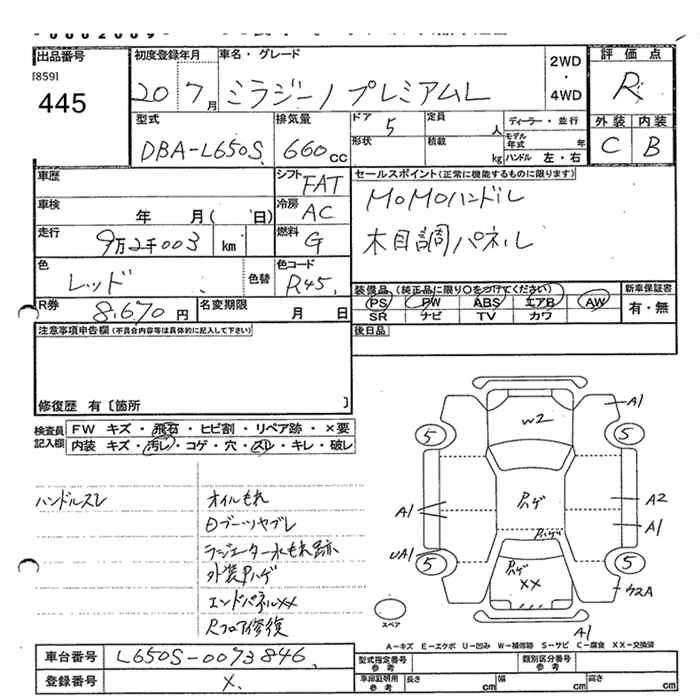 出品番号
[859]
445
初度登録年月
20 7月
車名・グレード
ミラジーノ プレミアムL
2WD
・
4WD
評価点
R
外装 内装
C B
型式
DBA-L650S
排気量
660cc
ドア 5
形状
定員 人
積載 kg
ディーラー・並行
モデル年式 年
ハンドル 左・右
車歴
車検 年 月( 日)
走行
9万2千003 km
シフト FAT
冷房 AC
燃料 G
セールスポイント(正常に機能するものに限ります)
MOMOハンドル
木目調パネル
色
レッド
色替
色コード
R45
R券 8,670円
名変期限 月 日
装備品(純正品に限り○をつけてください)
PS PW ABS エアB AW
SR ナビ TV カワ
新車保証書
有・無
後日品
注意事項申告欄(不具合内容等は具体的に記入して下さい)
修復歴 有〔箇所 〕
検査員記入欄
FW キズ・飛石・ヒビ割・リペア跡・×要
内装 キズ・汚レ・コゲ・穴・スレ・キレ・破レ
ハンドルスレ
オイルもれ
Dブーツヤブレ
ラジエーター水もれ跡
外装Pハゲ
エンドパネルXX
Rフロア修復
A1
W2
5
5
A1
Pハゲ
A2
A1
Pハゲ
UA1
5
Pハゲ
XX
5
スペア
A1
A-キズ E-エクボ U-凹み W-補修跡 S-サビ C-腐食 XX-交換済
車台番号 L650S-0073846
登録番号 X
型式指定番号 参考
類別区分番号 参考
車庫証明用 参考 長さ cm 幅 cm 高さ cm